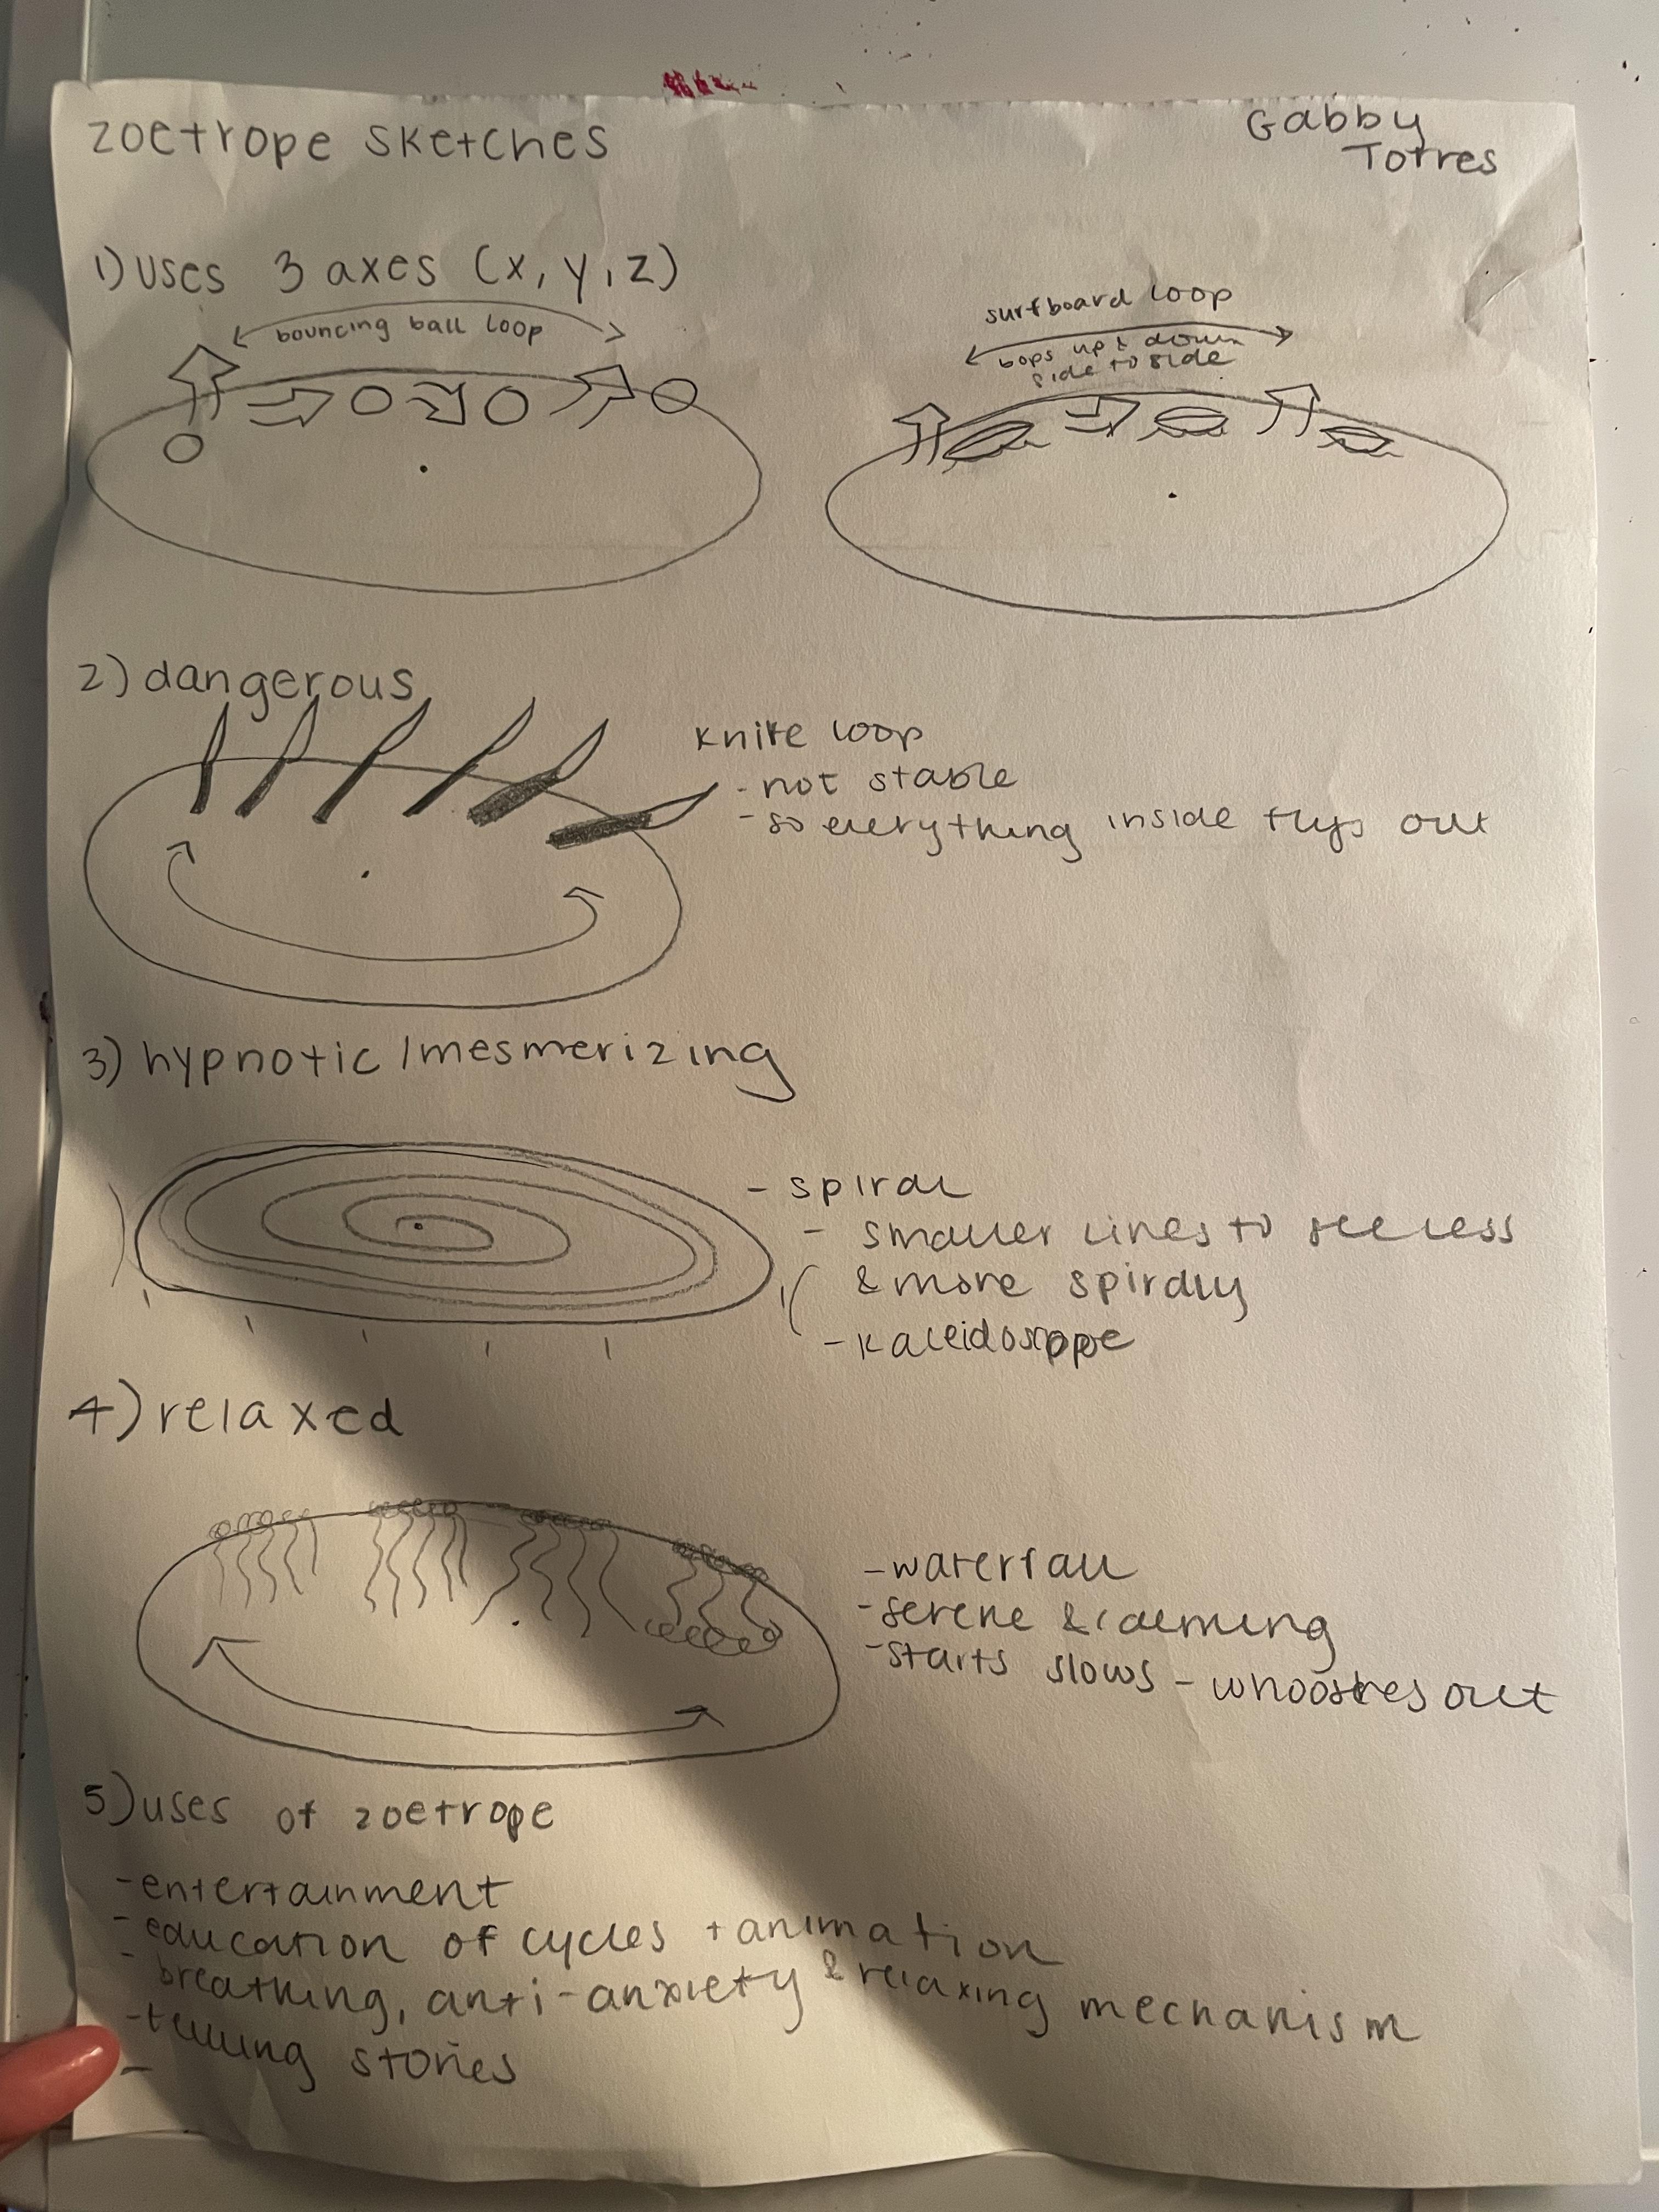 zoetrope sketches
Gabby
Torres
1) uses 3 axes (x, y, z)
bouncing ball loop
surfboard loop
bops up & down
side to side
2) dangerous
knife loop
- not stable
- so everything inside flys out
3) hypnotic / mesmerizing
- spiral
- smaller lines to see less
& more spirally
- kaleidoscope
4) relaxed
- waterfall
- serene & calming
- starts slows - whooshes out
5) uses of zoetrope
- entertainment
- education of cycles + animation
- breathing, anti-anxiety & relaxing mechanism
- telling stories
-